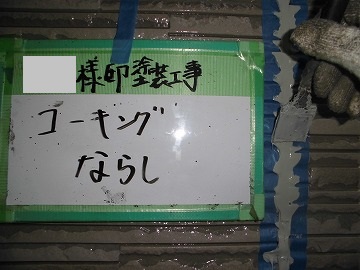 様印塗装工事
コーキング
ならし